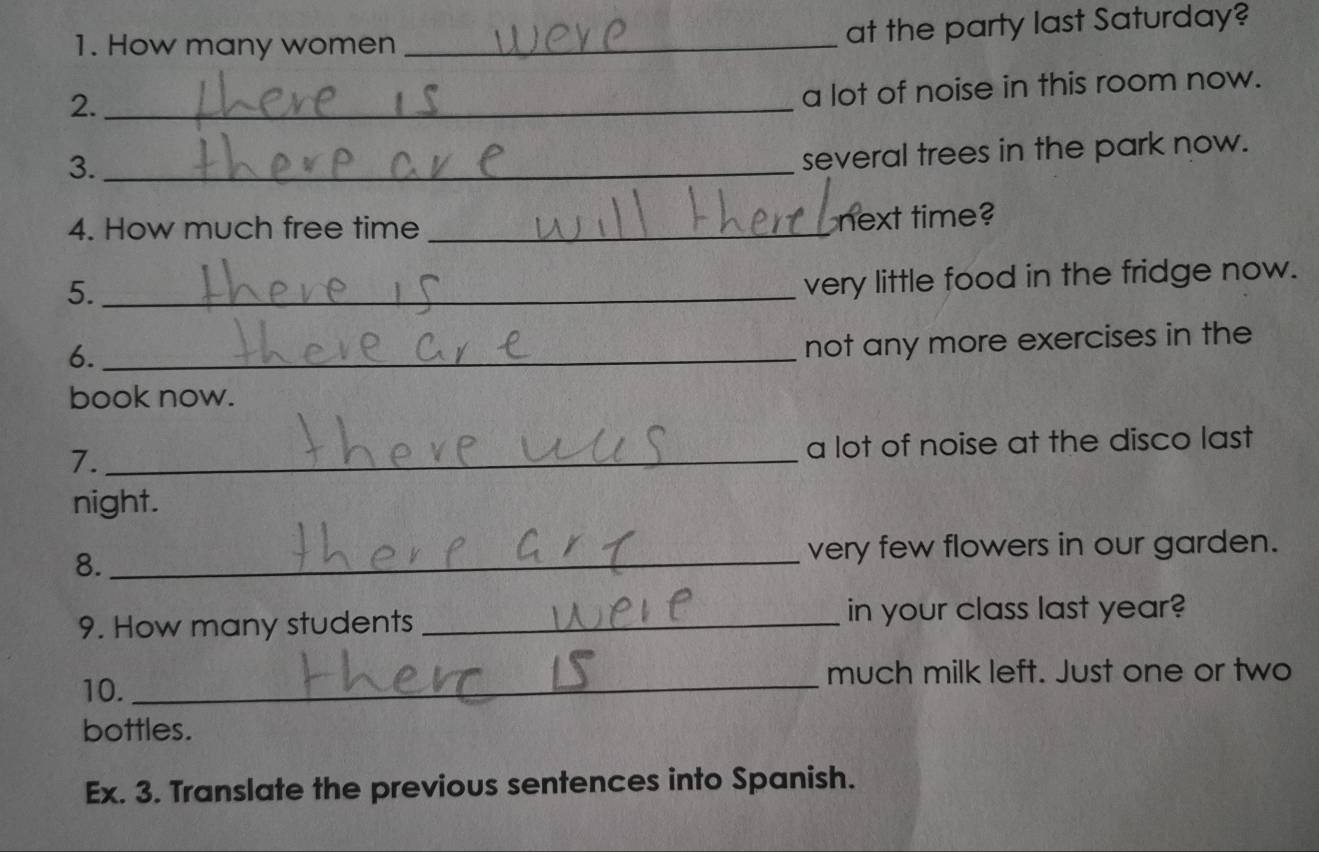 1. How many women were at the party last Saturday?
2. there is a lot of noise in this room now.
3. there are several trees in the park now.
4. How much free time will there be next time?
5. there is very little food in the fridge now.
6. there are not any more exercises in the
book now.
7. there was a lot of noise at the disco last
night.
8. there are very few flowers in our garden.
9. How many students were in your class last year?
10. there is much milk left. Just one or two
bottles.
Ex. 3. Translate the previous sentences into Spanish.